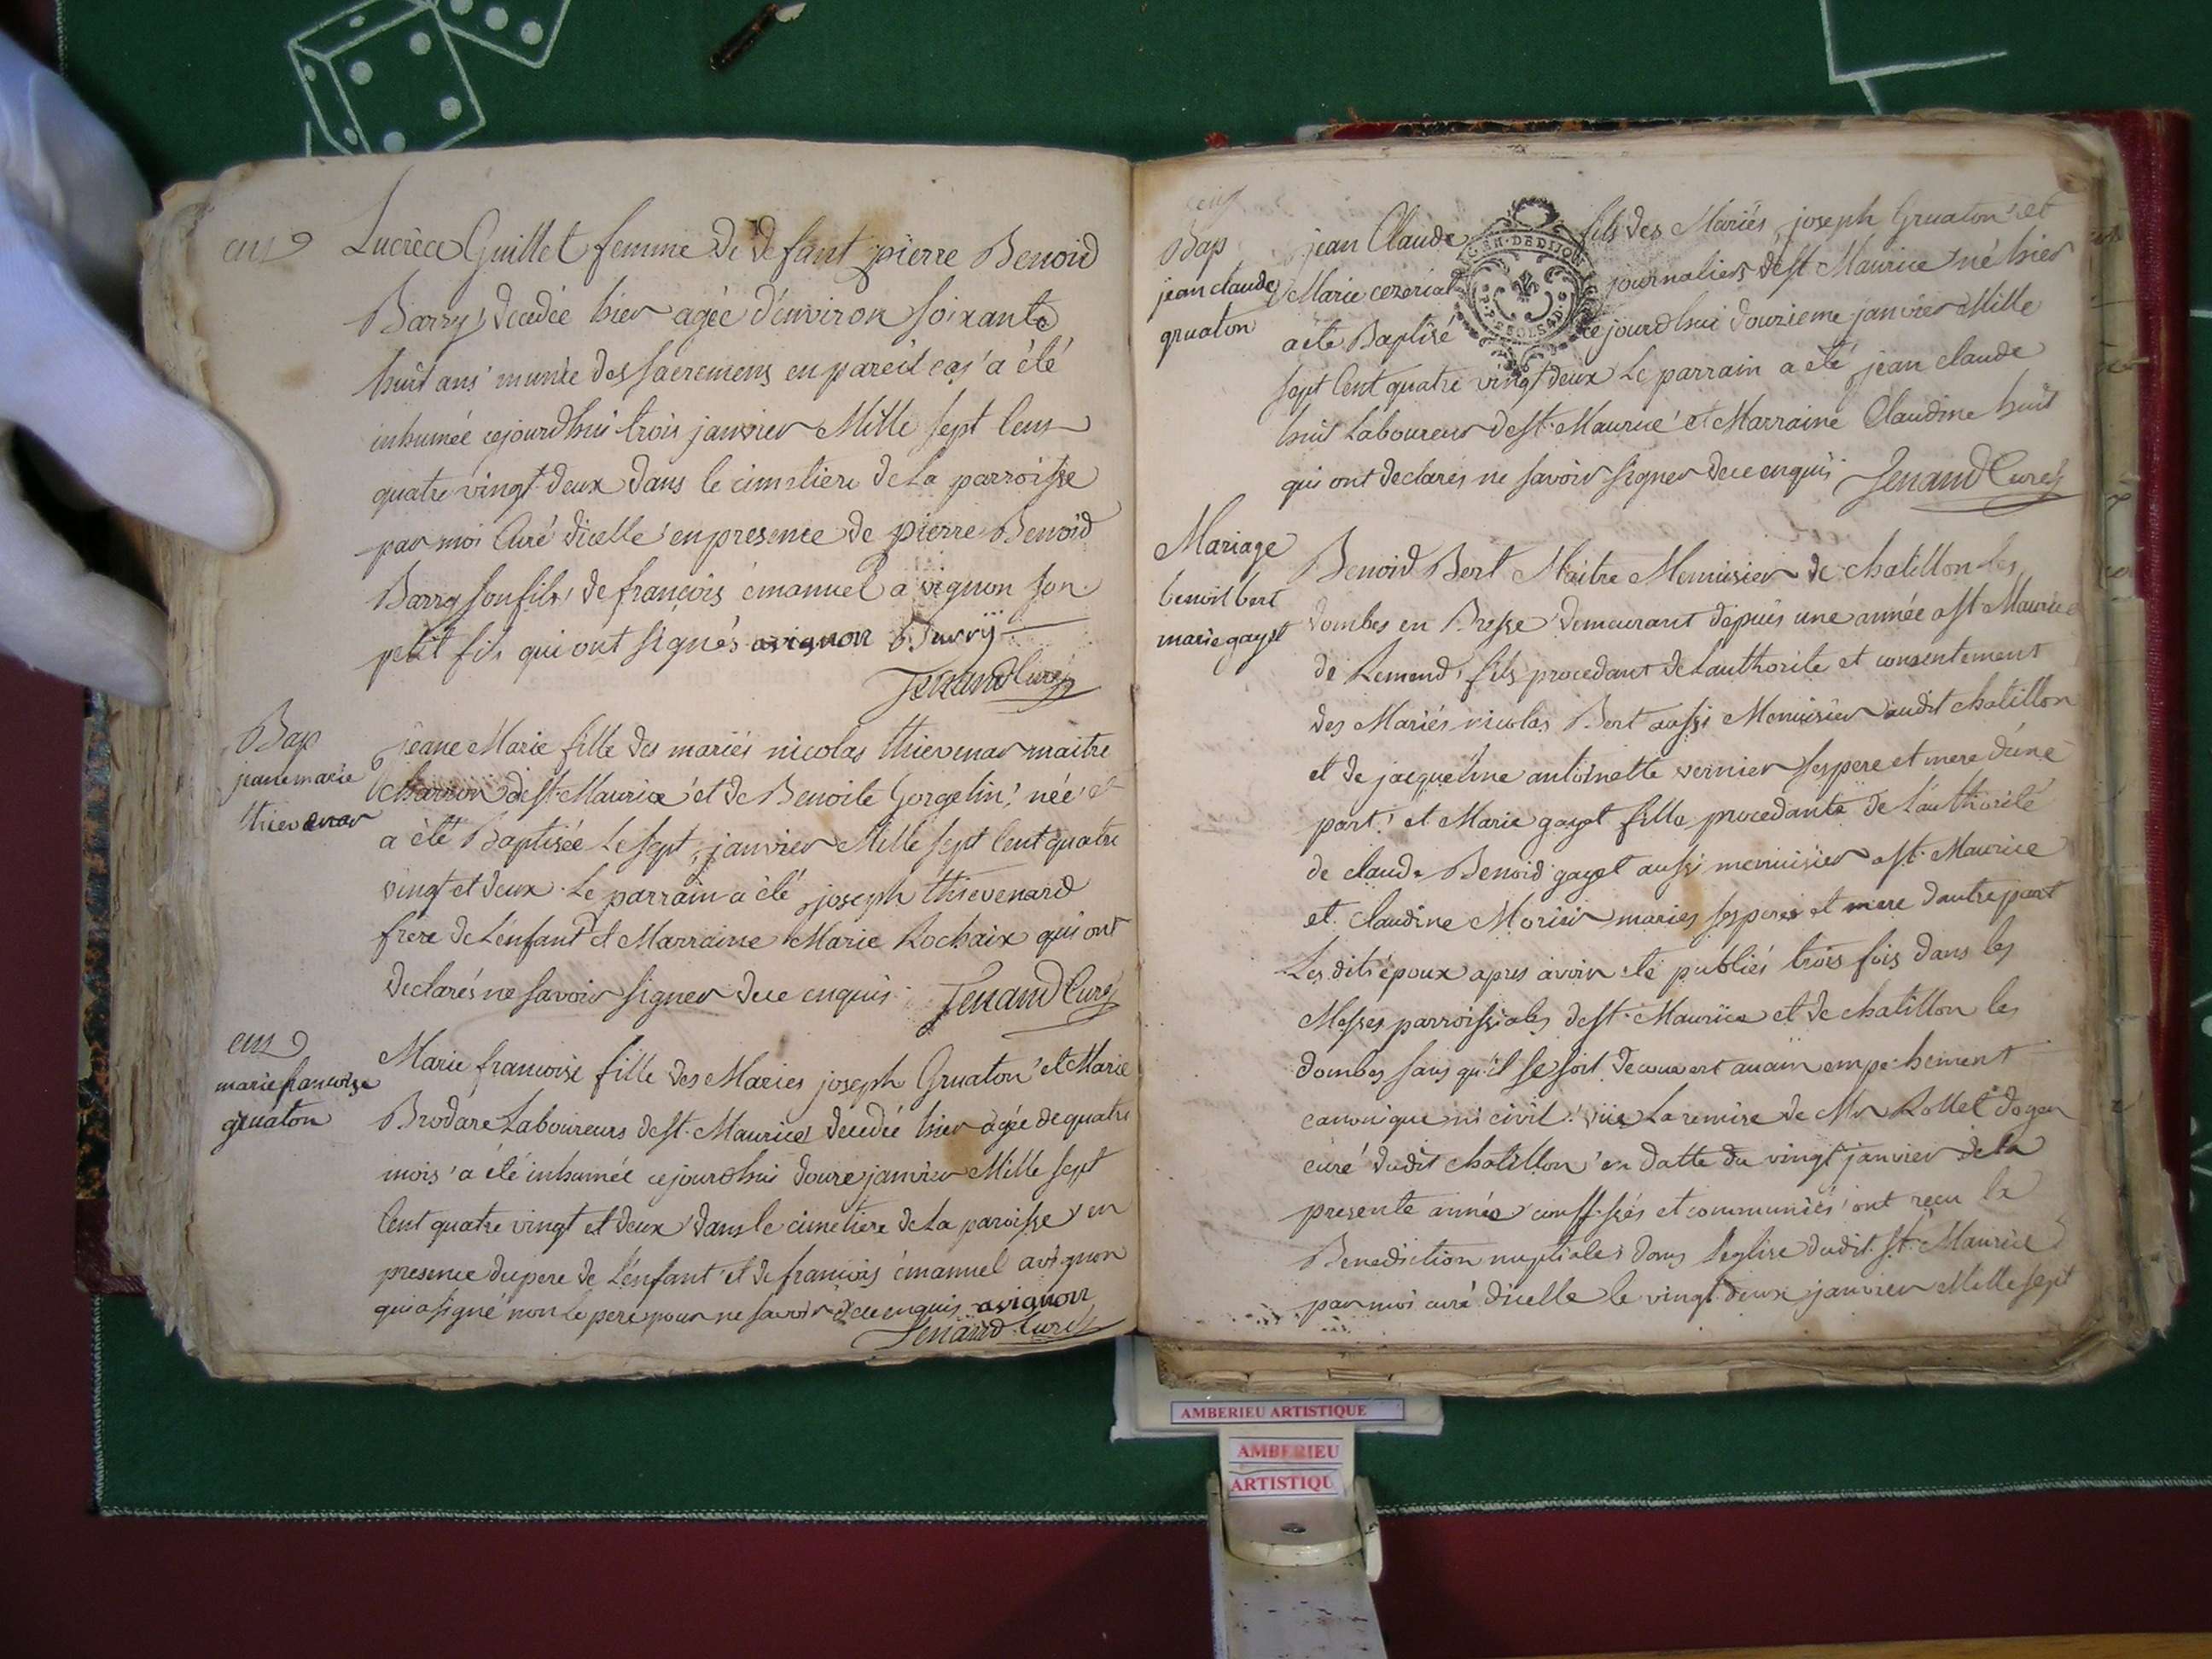 Lucrèce Guillet femme de defunt pierre Benoid
Barry, decedée hier agée d'environ soixante
huit ans munie des sacremens en pareil cas a été
inhumée cejourdhui trois janvier Mille sept cens
quatre vingt deux dans le cimetiere de La parroisse
par moi Curé dicelle en presence de pierre Benoid
Barry son fils, de françois émanuel avignon son
petit fils qui ont signés avignon Barry
Jenand Curé
Bap
jeanemarie
thievenar
jeane Marie fille des mariés nicolas thievenar maitre
Charron de st Maurice et de Benoite Gorgelin, née et
a été Baptisée Le sept janvier Mille sept Cent quatre
vingt et deux. Le parrain a été joseph thievenard
frere de L'enfant et Marraine Marie Rochaix qui ont
declarés ne savoir signer de ce enquis Jenand Curé
marie francoise
gruaton
Marie francoise fille des Maries joseph Gruaton et Marie
Brodare Laboureurs de st Maurice decedée hier agée de quatre
mois a été inhumée cejourdhui douze janvier Mille sept
Cent quatre vingt et deux dans le cimetiere de La paroisse en
presence du pere de L'enfant et de francois émanuel avignon
qui a signé non le pere pour ne savoir de ce enquis avignon
Jenand Curé
Bap
jean claude
gruaton
jean Claude fils des Mariés joseph Gruaton et
Marie cezeriat journaliers de st Maurice né hier
a été Baptisé cejourdhui douzieme janvier Mille
GEN. DE DIJON
sept Cent quatre vingt deux Le parrain a été jean claude
huit Laboureur de st Maurice et Marraine Claudine huit
qui ont declarés ne savoir signer de ce enquis Jenand Curé
Mariage
benoit bert
marie gayet
Benoid Bert Maitre Menuisier de chatillon les
dombes en Bresse demeurant depuis une année a st Maurice
de Remend, fils procedant de Lauthorite et consentement
des Mariés nicolas Bert aussi Menuisier audit chatillon
et de jacqueline antoinette vernier ses pere et mere d'une
part, et Marie gayet fille procedante de L'authorité
de claude Benoid gayet aussi menuisier a st Maurice
et claudine Morier maries ses pere et mere dautre part
Les dits époux apres avoir été publiés trois fois dans les
Messes parroissiales de st Maurice et de chatillon les
dombes sans qu'il se soit decouvert aucun empechement
canonique ni civil, vüe La remise de Mr Rollet doyen
curé dudit chatillon en datte du vingt janvier de la
presente année conffessés et communiés ont recu la
Benediction nuptiales dans L'eglise dudit st Maurice
par moi curé dicelle le vingt deux janvier Mille sept
AMBERIEU ARTISTIQUE
AMBERIEU
ARTISTIQU